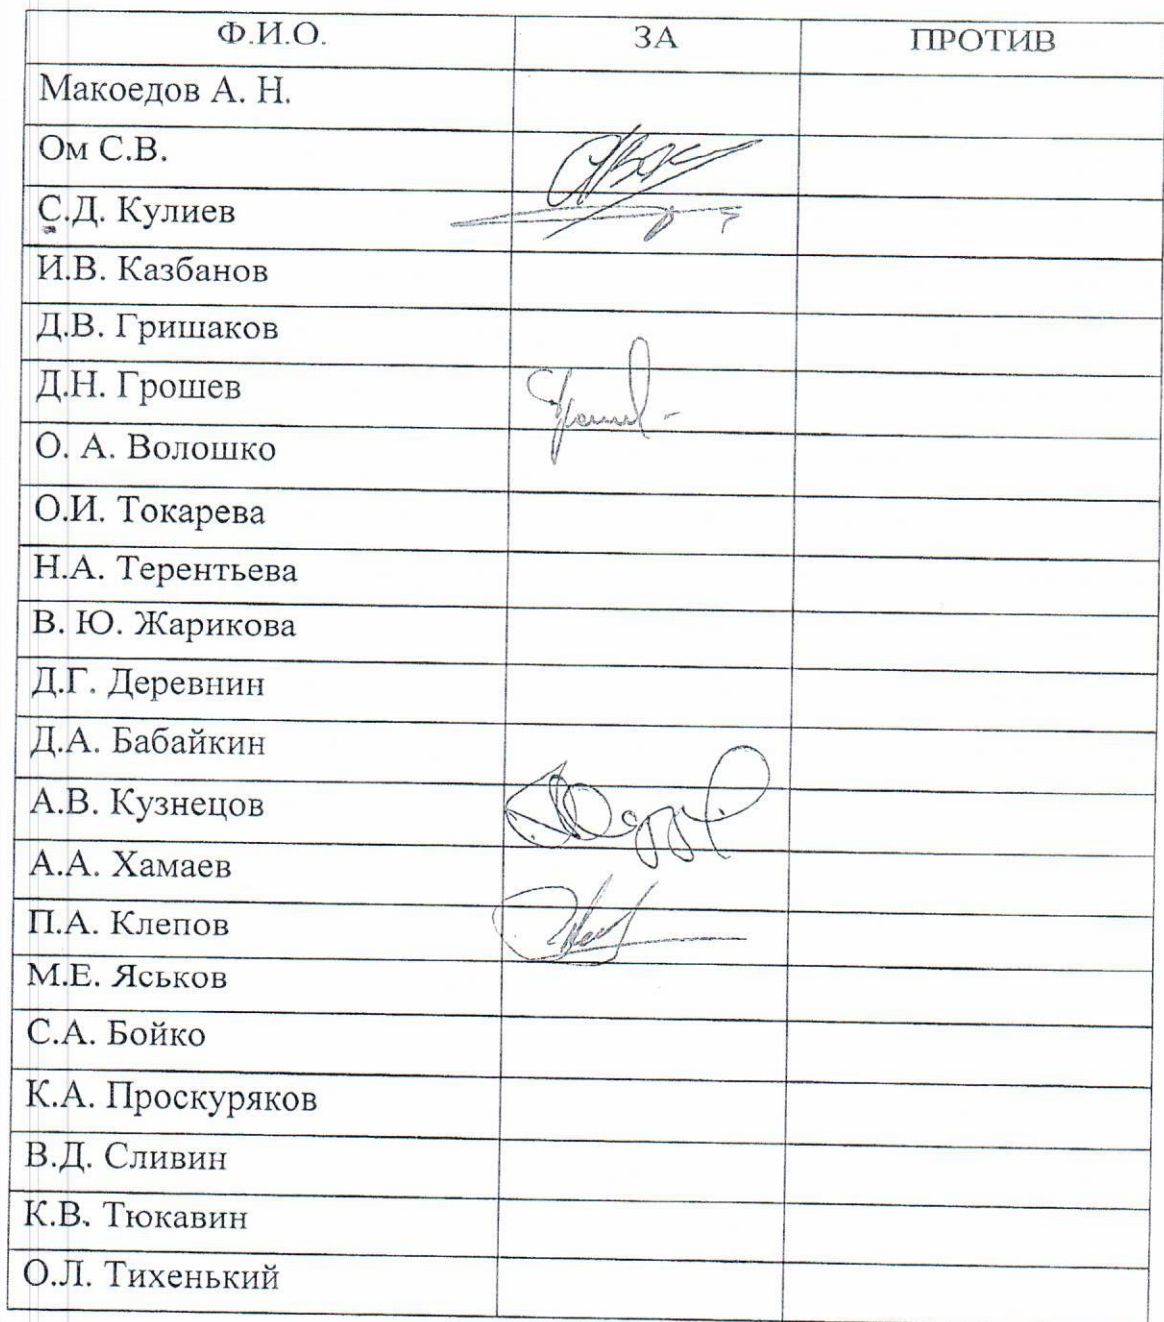 Ф.И.О. ЗА ПРОТИВ
Макоедов А. Н.
Ом С.В.
С.Д. Кулиев
И.В. Казбанов
Д.В. Гришаков
Д.Н. Грошев
О. А. Волошко
О.И. Токарева
Н.А. Терентьева
В. Ю. Жарикова
Д.Г. Деревнин
Д.А. Бабайкин
А.В. Кузнецов
А.А. Хамаев
П.А. Клепов
М.Е. Яськов
С.А. Бойко
К.А. Проскуряков
В.Д. Сливин
К.В. Тюкавин
О.Л. Тихенький